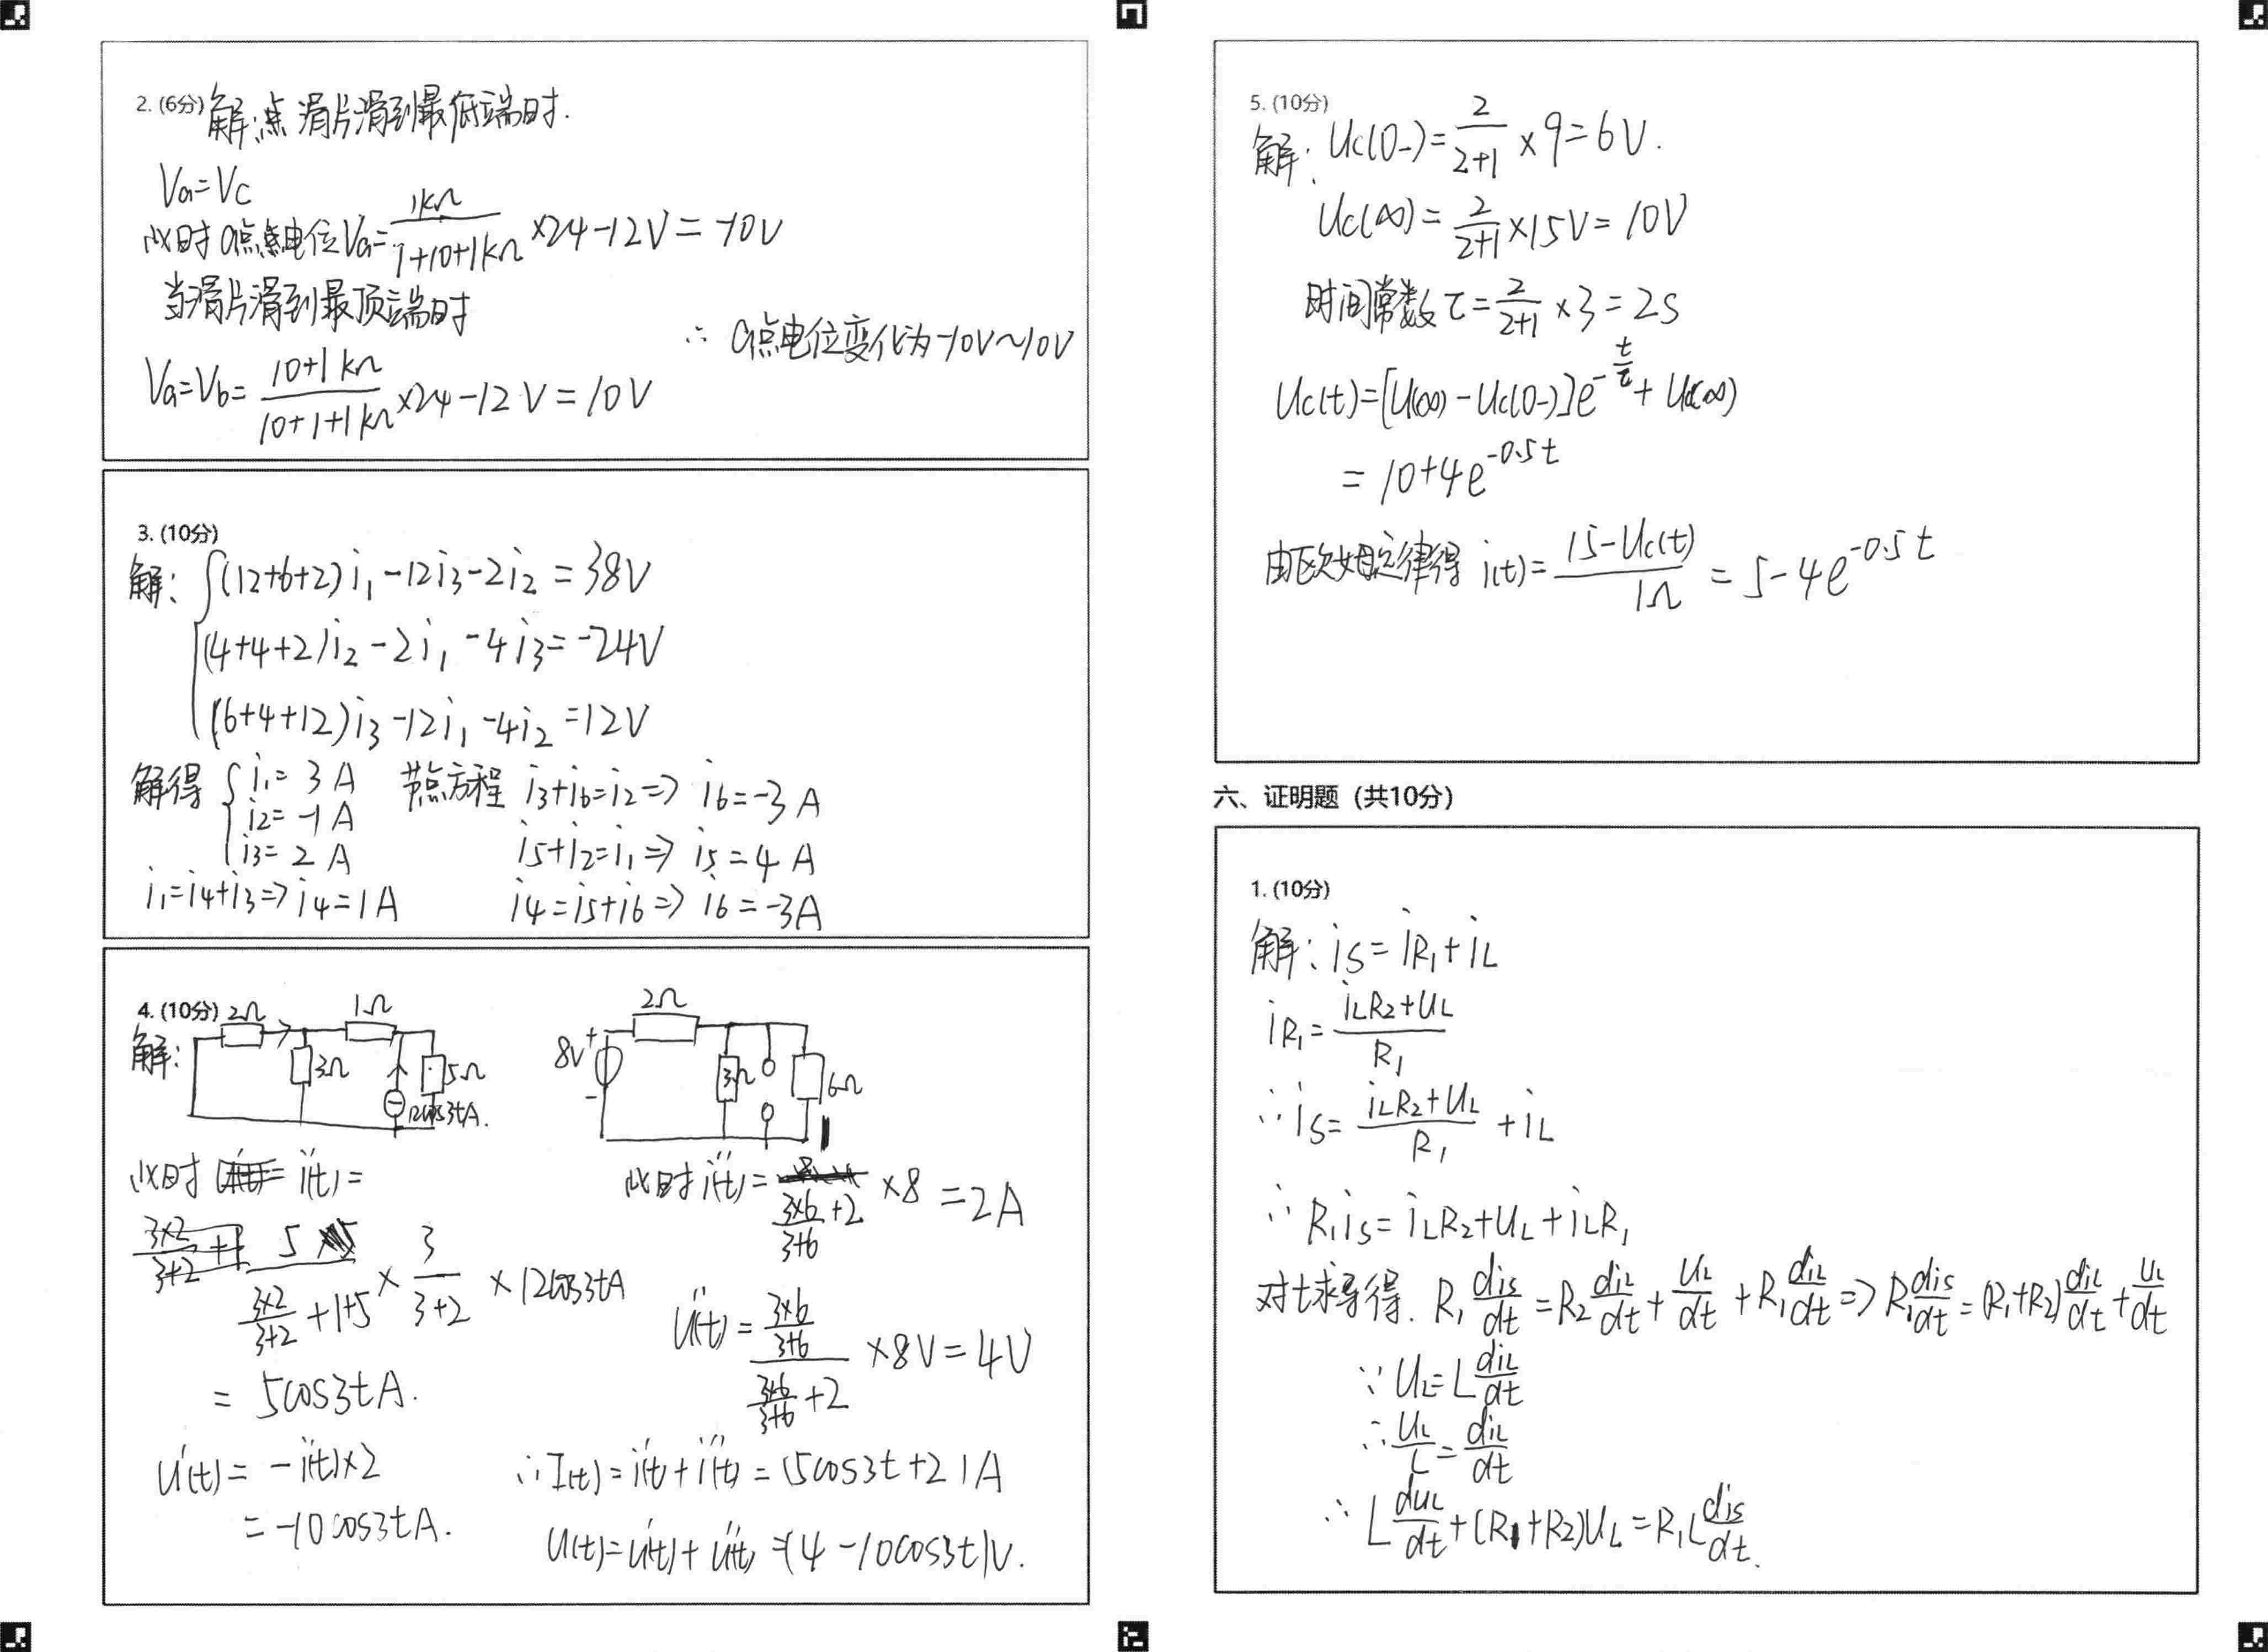 2. (6分) 解: 点 滑片滑到最低端时.
Va=Vc
此时 a点电位 Va= 1kΩ/(1+10+1kΩ) ×24-12V = -10V
当滑片滑到最顶端时
Va=Vb= (10+1kΩ)/(10+1+1kΩ) ×24-12V = 10V
∴ a点电位变化为-10V~10V
3. (10分)
解: (12+6+2)i₁-12i₃-2i₂ = 38V
(4+4+2)i₂-2i₁-4i₃=-24V
(6+4+12)i₃-12i₁-4i₂=12V
解得 i₁= 3 A 节点方程 i₃+i₆=i₂ => i₆=-3 A
i₂= -1 A
i₃= 2 A i₅+i₂=i₁ => i₅=4 A
i₁=i₄+i₃ => i₄=1A i₄=i₅+i₆ => i₆=-3A
4. (10分) 2Ω 1Ω
解:
3Ω 5Ω
12cos3tA.
2Ω
8V + -
3Ω 6Ω
此时 i'(t)=
5/(3×2/(3+2)+1+5) × 3/(3+2) ×12cos3tA
= 5cos3tA.
u'(t)= -i'(t)×2
=-10cos3tA.
此时 i''(t)= /(3×6/(3+6)+2) ×8 =2A
u''(t)= (3×6/(3+6))/(3×6/(3+6)+2) ×8V=4V
∴I(t)=i'(t)+i''(t)=(5cos3t+2)A
u(t)=u'(t)+u''(t)=(4-10cos3t)V.
5. (10分)
解: Uc(0-)= 2/(2+1) ×9=6V.
Uc(∞)= 2/(2+1) ×15V=10V
时间常数 τ= 2/(2+1) ×3=2S
Uc(t)=[U(∞)-Uc(0-)]e^(-t/τ)+Uc(∞)
= 10+4e^(-0.5t)
由欧姆定律得 i(t)= (15-Uc(t))/1Ω = 5-4e^(-0.5t)
六、证明题 (共10分)
1. (10分)
解: iS=iR₁+iL
iR₁= (iLR₂+UL)/R₁
∴iS= (iLR₂+UL)/R₁ +iL
∴R₁iS=iLR₂+UL+iLR₁
对t求导得. R₁ diS/dt =R₂ diL/dt + UL/dt +R₁ diL/dt => R₁ diS/dt =(R₁+R₂) diL/dt + UL/dt
∵UL=L diL/dt
∴ UL/L = diL/dt
∴ L duL/dt +(R₁+R₂)UL=R₁L diS/dt.